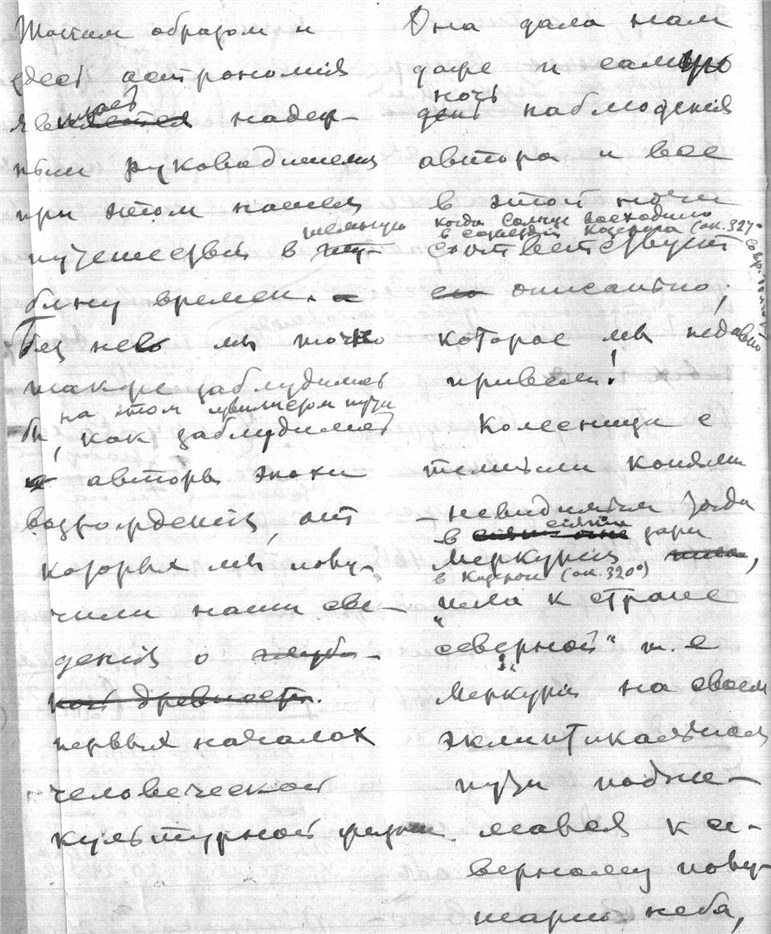 Таким образом и
здесь астрономия
является надеж-
ным руководителем
при этом нашем
путешествии в темную
глубину времен.
Без нее мы точно
также заблудились
на этом пути
бы, как заблудились
авторы эпохи
возрождения, от
которых мы полу-
чили наши све-
дения о глубо-
кой древности.
первых началах
человеческой
культурной жизни.
Она дала нам
даже и самую
ночь
день наблюдения
автора и все
в этой ночи
когда Солнце восходило
в созвездии Козерога (ок. 327°
соответствует
его описанию,
которое мы недавно
привели!
Колесница с
темными конями
– невидимая тогда
в сиянии зари
Меркурия
в Козероге (ок. 320°)
шла к стране
"северной" т. е.
Меркурий на своем
эклиптикальном
пути подни-
мался к се-
верному полу-
шарию неба,